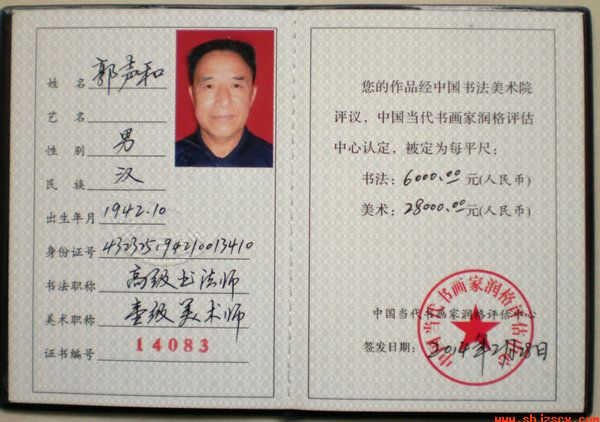 姓 名 郭 和
艺 名
性 别 男
民 族 汉
出生年月 1942.10
身份证号 432325194210013410
书法职称 高级书法师
美术职称 壹级美术师
证书编号 14083
您的作品经中国书法美术院
评议,中国当代书画家润格评估
中心认定,被定为每平尺:
书法:6000.00元(人民币)
美术:28000.00元(人民币)
中国当代书画家润格评估中心
签发日期:2014年2月28日
中国当代书画家润格评估中心